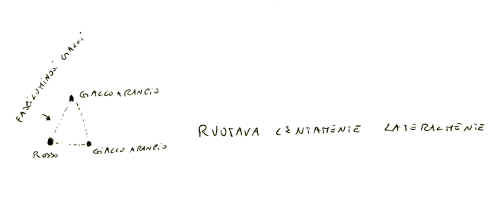 FASCI LUMINOSI GIALLI
GIALLO ARANCIO
ROSSO
GIALLO ARANCIO
RUOTAVA LENTAMENTE LATERALMENTE